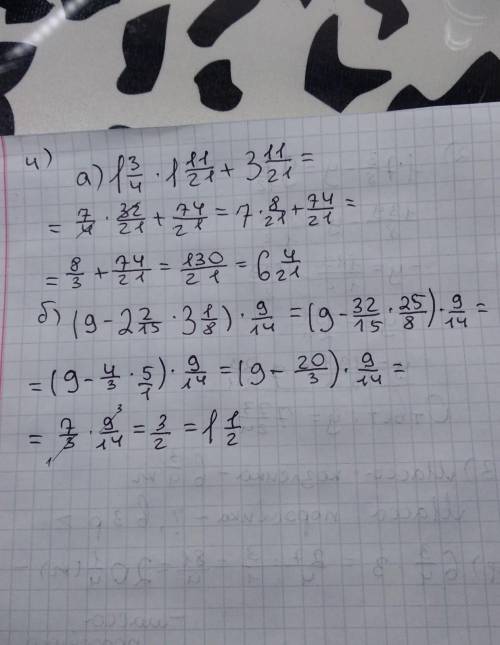 4)
а) 1 3/4 · 1 11/21 + 3 11/21 =
= 7/4 · 32/21 + 74/21 = 7 · 8/21 + 74/21 =
= 8/3 + 74/21 = 130/21 = 6 4/21
б) (9 - 2 2/15 · 3 1/8) · 9/14 = (9 - 32/15 · 25/8) · 9/14 =
= (9 - 4/3 · 5/1) · 9/14 = (9 - 20/3) · 9/14 =
= 7/3 · 9/14 = 3/2 = 1 1/2